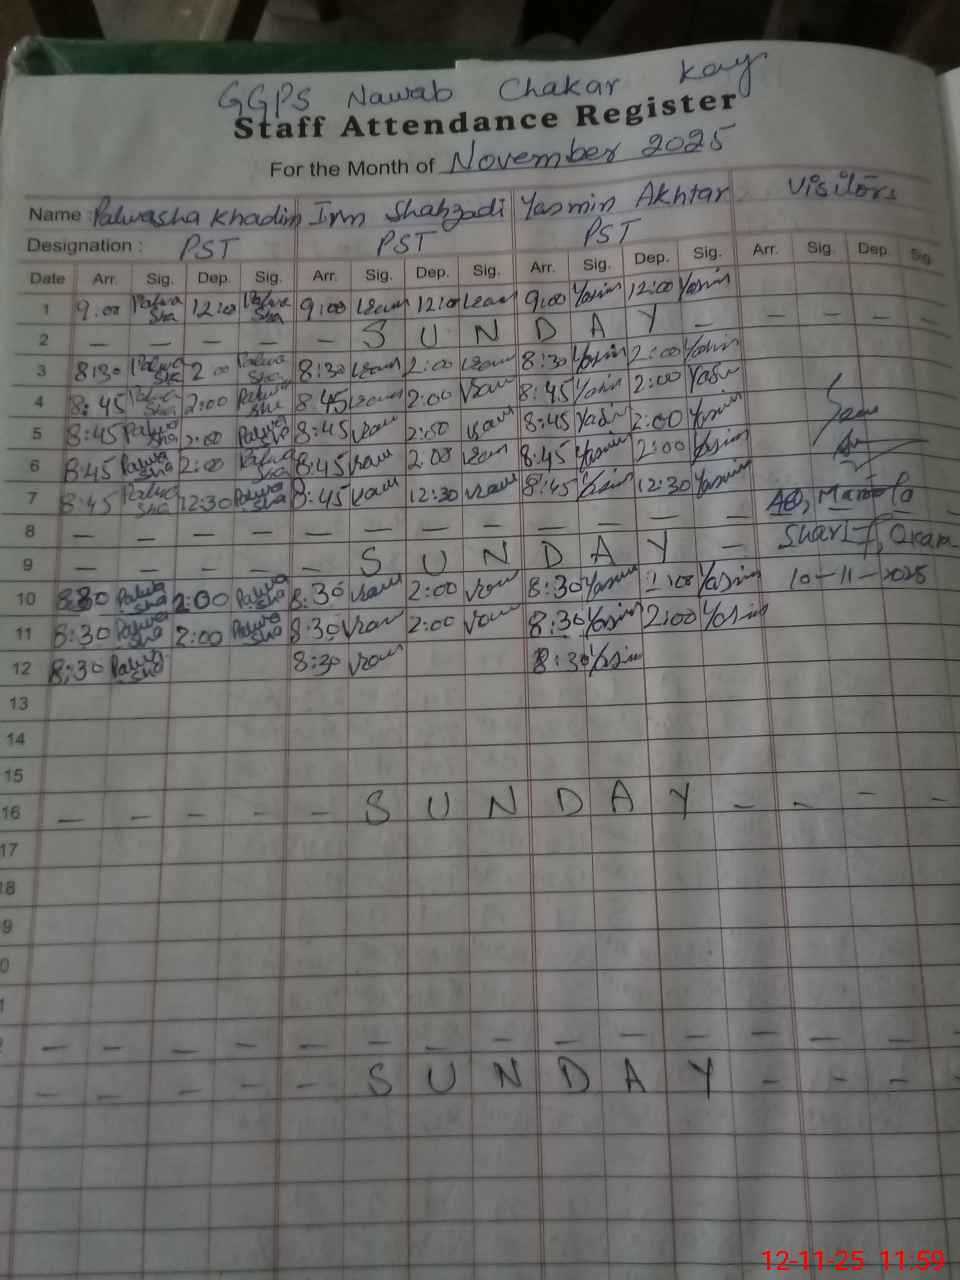 GGPS Nawab Chakar Kay
Staff Attendance Register
For the Month of November 2025
Name : Palwasha Khadim Irm Shahzadi Yasmin Akhtar Visitors
Designation : PST PST PST
Date Arr. Sig. Dep. Sig. Arr. Sig. Dep. Sig. Arr. Sig. Dep. Sig. Arr. Sig. Dep. Sig.
1 9:00 Palwa Sha 12:00 Palwa Sha 9:00 12:00 9:00 Yasmin 12:00 Yasmin
2 — — — — — S U N D A Y — — — — —
3 8:30 Palwa Sha 2:00 Palwa Sha 8:30 2:00 8:30 Yasmin 2:00 Yasmin
4 8:45 Palwa Sha 2:00 Palwa Sha 8:45 2:00 8:45 Yasin 2:00
5 8:45 Palwa Sha 2:00 Palwa Sha 8:45 2:00 8:45 2:00 Yasmin
6 8:45 Palwa Sha 2:00 Palwa Sha 8:45 2:00 8:45 Yasmin 2:00 Yasmin
7 8:45 Palwa Sha 12:30 Palwa Sha 8:45 12:30 8:45 12:30 Yasmin
8 — — — — — — — — — — — — Sharif,
9 — — — — — S U N D A Y —
10 8:30 Palwa Sha 2:00 Palwa Sha 8:30 2:00 8:30 Yasmin 2:00 Yasmin 10-11-2025
11 8:30 Palwa Sha 2:00 Palwa Sha 8:30 2:00 8:30 Yasmin 2:00 Yasmin
12 8:30 Palwa Sha 8:30 8:30 Yasmin
13
14
15
16 — — — — — S U N D A Y — — — —
17
18
9
0
1
— — — — — — — — — — — — — — —
— — — — — S U N D A Y — — — —
12-11-25 11:59